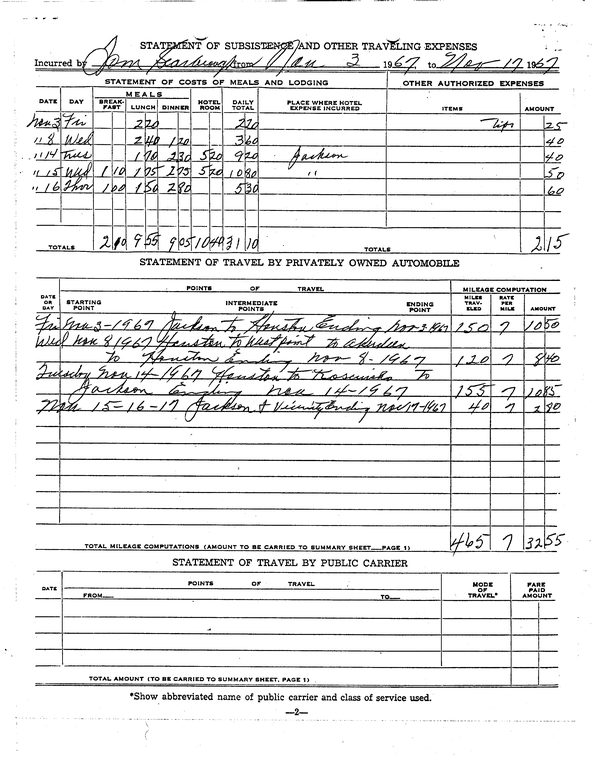 STATEMENT OF SUBSISTENCE AND OTHER TRAVELING EXPENSES
Incurred by Tom Scarbrough from Nov. 3 1967 to Nov 17 1967
STATEMENT OF COSTS OF MEALS AND LODGING OTHER AUTHORIZED EXPENSES
MEALS
DATE DAY BREAK-FAST LUNCH DINNER HOTEL ROOM DAILY TOTAL PLACE WHERE HOTEL EXPENSE INCURRED ITEMS AMOUNT
Nov 3 Fri 2 20 2 20 Tips 25
" 8 Wed 2 40 1 20 3 60 40
" 14 Tues 1 70 2 30 5 20 9 20 Jackson 40
" 15 Wed 1 10 1 75 2 75 5 20 10 80 " 50
" 16 Thur 1 00 1 50 2 80 5 30 60
TOTALS 2 10 9 55 9 05 10 40 31 10 TOTALS 2 15
STATEMENT OF TRAVEL BY PRIVATELY OWNED AUTOMOBILE
POINTS OF TRAVEL MILEAGE COMPUTATION
DATE OR DAY STARTING POINT INTERMEDIATE POINTS ENDING POINT MILES TRAV-ELED RATE PER MILE AMOUNT
Fri Nov 3-1967 Jackson to Houston Ending Nov 3-1967 150 7 10 50
Wed Nov 8 1967 Houston to Westpoint to Aberdeen
to Houston Ending Nov 8-1967 120 7 8 40
Tuesday Nov 14-1967 Houston to Kosciusko to
Jackson Ending Nov 14-1967 155 7 10 85
Nov 15-16-17 Jackson & Vicinity Ending Nov 17-1967 40 7 2 80
TOTAL MILEAGE COMPUTATIONS (AMOUNT TO BE CARRIED TO SUMMARY SHEET—PAGE 1) 465 7 32 55
STATEMENT OF TRAVEL BY PUBLIC CARRIER
DATE POINTS OF TRAVEL MODE OF TRAVEL* FARE PAID AMOUNT
FROM— TO—
TOTAL AMOUNT (TO BE CARRIED TO SUMMARY SHEET. PAGE 1)
*Show abbreviated name of public carrier and class of service used.
—2—